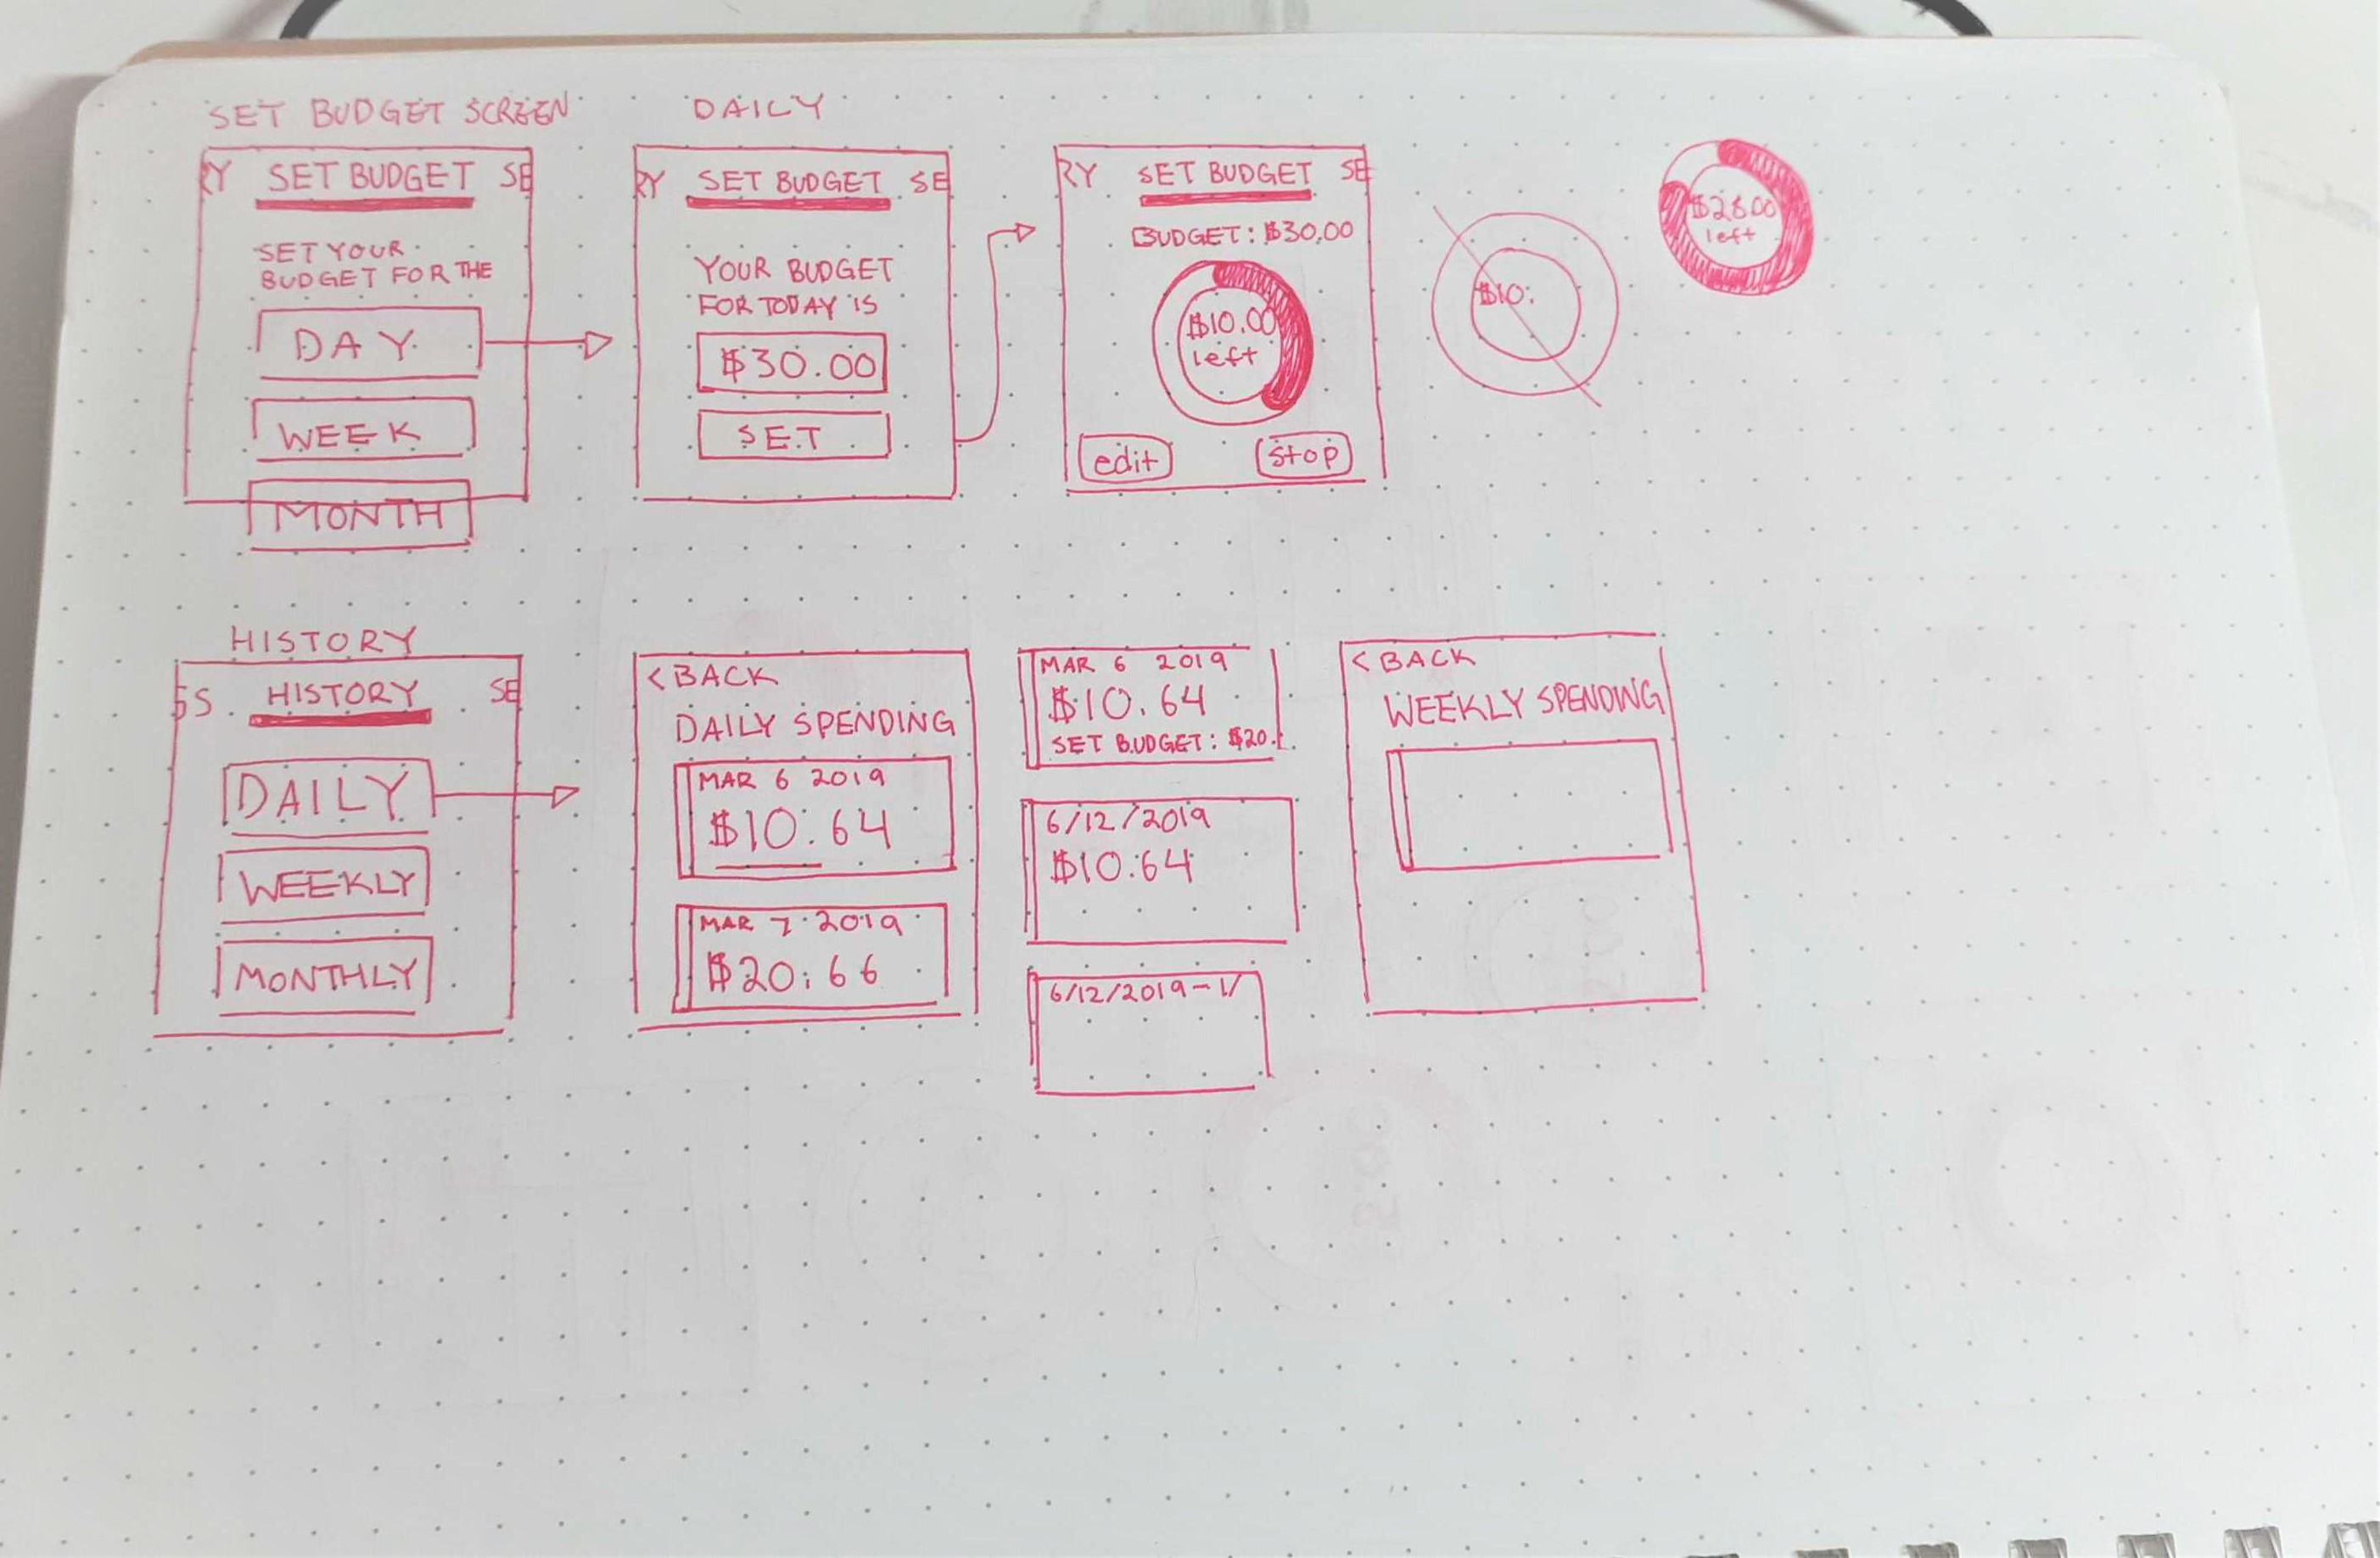 SET BUDGET SCREEN
RY SET BUDGET SE
SET YOUR
BUDGET FOR THE
DAY
WEEK
MONTH
DAILY
RY SET BUDGET SE
YOUR BUDGET
FOR TODAY IS
$30.00
SET
RY SET BUDGET SE
BUDGET: $30.00
$10.00
left
edit
stop
$10.
$28.00
left
HISTORY
GS HISTORY SE
DAILY
WEEKLY
MONTHLY
< BACK
DAILY SPENDING
MAR 6 2019
$10.64
MAR 7 2019
$20.66
MAR 6 2019
$10.64
SET BUDGET: $20.
6/12/2019
$10.64
6/12/2019-1/
< BACK
WEEKLY SPENDING